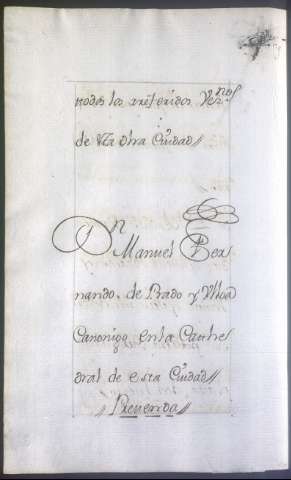 todos los rreferidos Vez.nos
de Vra dha Ciudad //
Dn
Manuel Fer
nando, de Prado y Ulloa
Canonigo en la Cathe
dral de esta Ciudad //
// Prevenda //